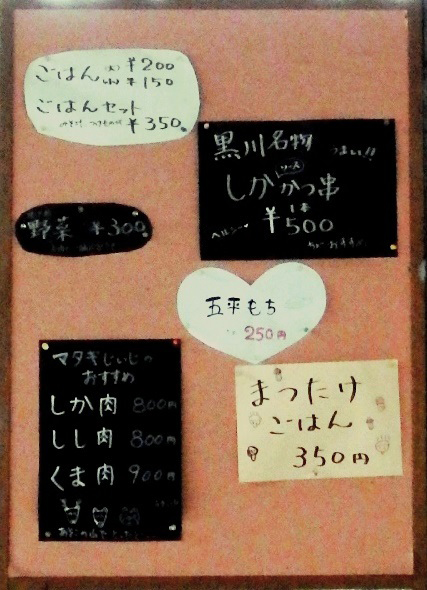 ごはん 大 ¥200
小 ¥150
ごはんセット
¥350
黒川名物 うまい!!
ソース
しかかつ串
1本
¥500
ヘルシー♥
野菜 ¥300
五平もち
250円
マタギじいじの
おすすめ
しか肉 800円
しし肉 800円
くま肉 900円
まつたけ
ごはん
350円